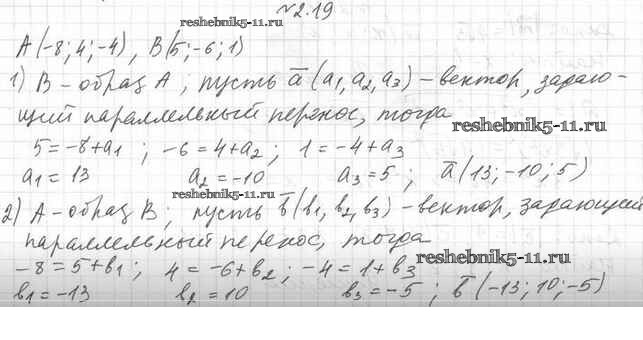 №2.19
reshebnik5-11.ru
A(-8; 4; -4), B(5; -6; 1)
1) B - образ A ; пусть a̅ (a₁, a₂, a₃) - вектор, задаю-
щий параллельный перенос, тогда
reshebnik5-11.ru
5 = -8 + a₁ ; -6 = 4 + a₂ ; 1 = -4 + a₃
a₁ = 13 a₂ = -10 a₃ = 5 ; a̅ (13; -10; 5)
reshebnik5-11.ru
2) A - образ B ; пусть b̅ (b₁, b₂, b₃) - вектор, задающий
параллельный перенос, тогда
reshebnik5-11.ru
-8 = 5 + b₁ ; 4 = -6 + b₂ ; -4 = 1 + b₃
b₁ = -13 b₂ = 10 b₃ = -5 ; b̅ (-13; 10; -5)